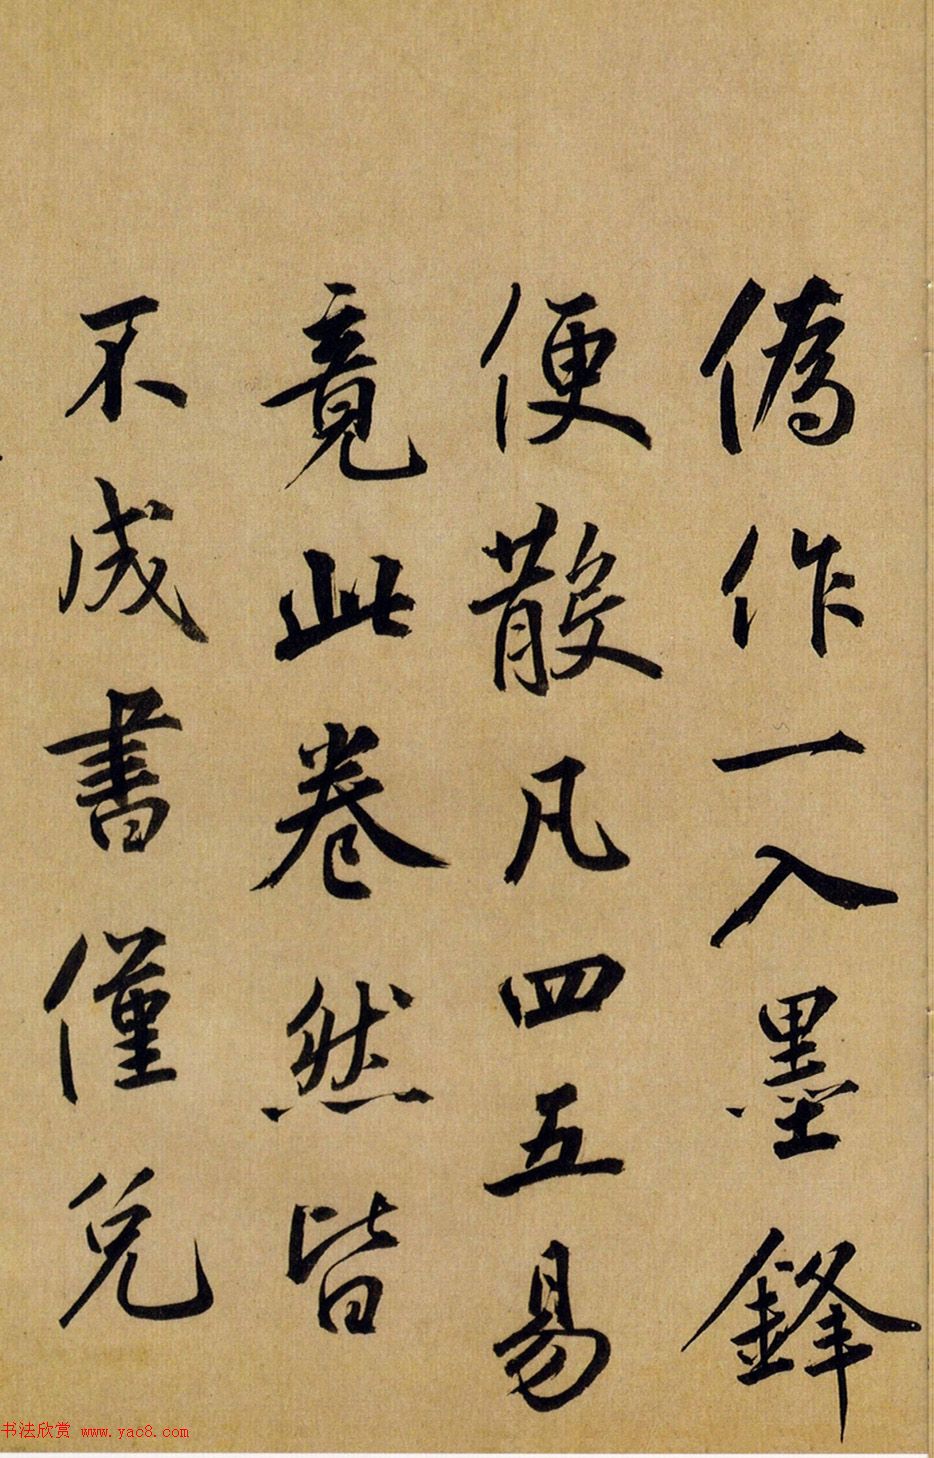 僞作一入墨鋒
便散凡四五易
竟此卷然皆
不成書僅兌
书法欣赏 www.yac8.com